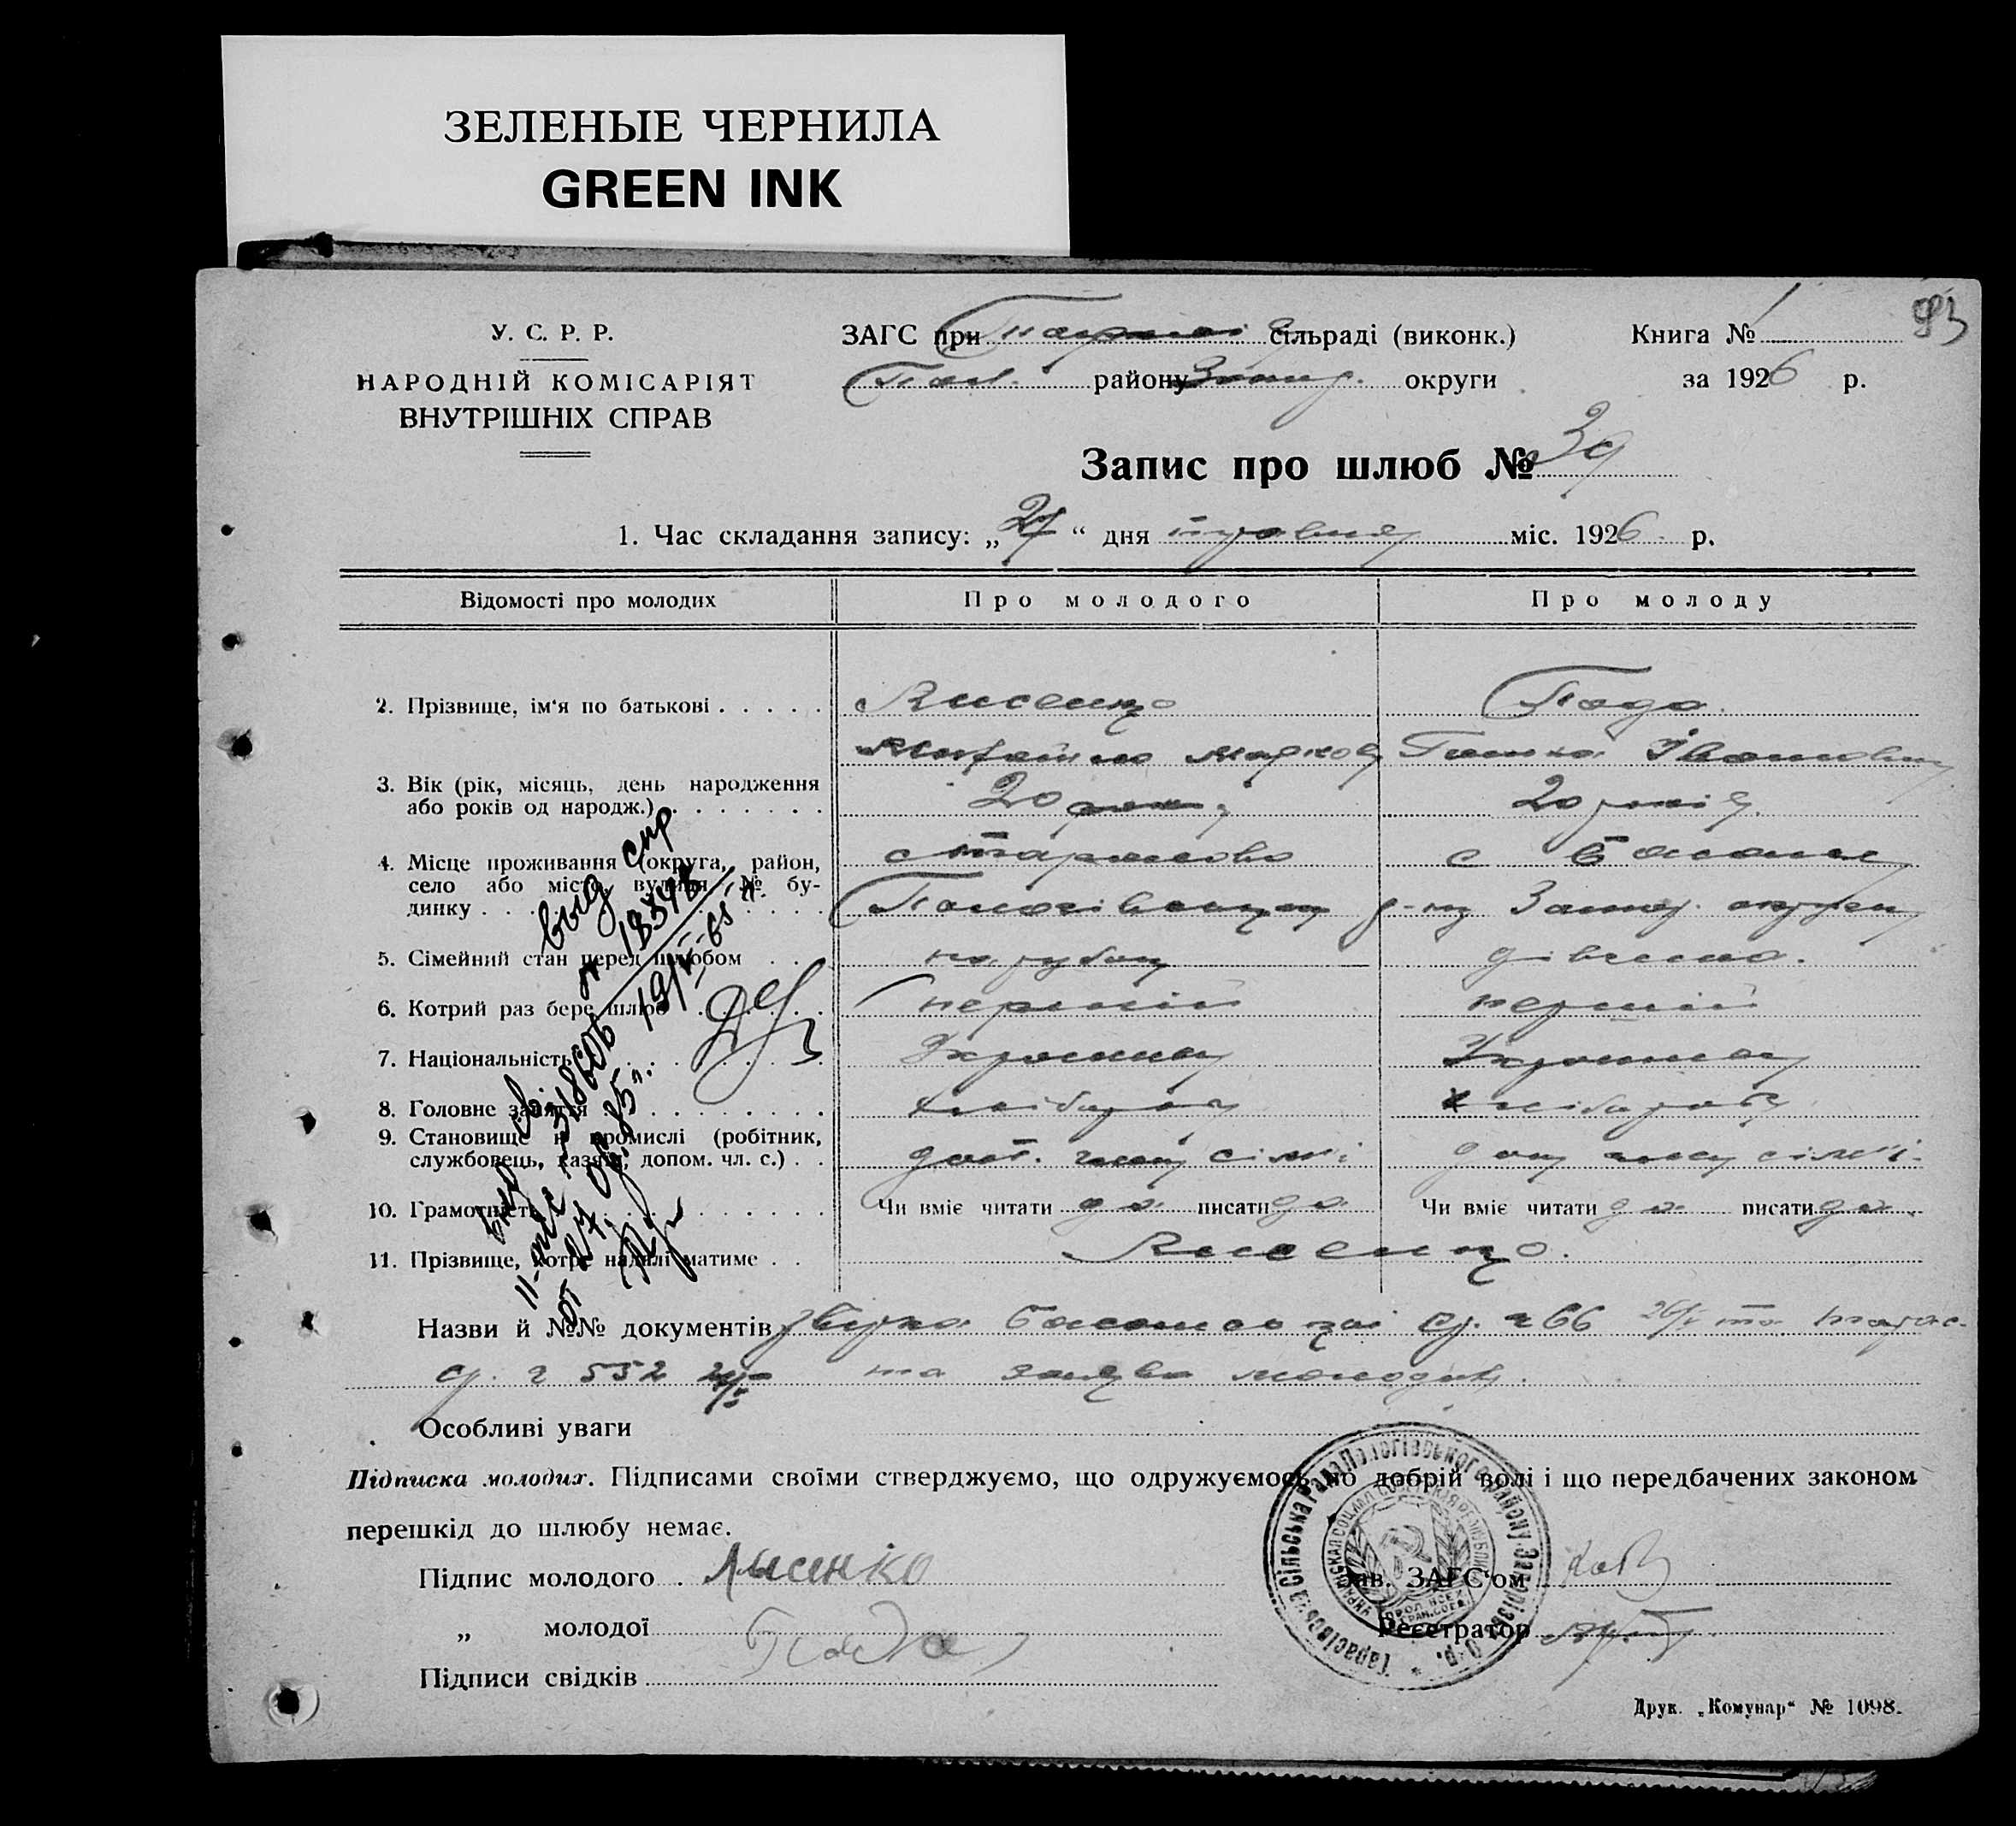 ЗЕЛЕНЫЕ ЧЕРНИЛА
GREEN INK
У. С. Р. Р.
НАРОДНІЙ КОМІСАРІЯТ
ВНУТРІШНІХ СПРАВ
ЗАГС при сільраді (виконк.)
Пол. району Запор. округи
Книга № 1
93
за 1926 р.
Запис про шлюб № 39
1. Час складання запису: „27“ дня травня міс. 1926 р.
Відомості про молодих
Про молодого
Про молоду
2. Прізвище, ім'я по батькові
Лисенко
Пада
Михайло Марков
Ганна Івановна
3. Вік (рік, місяць, день народження
або років од народж.)
20 років
20 років
4. Місце проживання (округа, район,
село або місто, вулиця, № бу-
динку
с Тарасовка
с Басань
Пологівського р-ну Запор. округи
5. Сімейний стан перед шлюбом
парубок
дівчина.
6. Котрий раз бере шлюб
перший
перший
7. Національність
Українец
Українка
8. Головне заняття
хлібороб
хлібороб
9. Становище в промислі (робітник,
службовець, хазяїн, допом. чл. с.)
доп. член сім'ї
доп член сім'ї.
10. Грамотність
Чи вміє читати да писати да
Чи вміє читати да писати да.
11. Прізвище, котре надалі матиме
Лисенко.
Назви й №№ документів Басанської с.р. 266 26/V та Тарас.
с.р. 2 552 та заява молодих.
Особливі уваги
Підписка молодих. Підписами своїми стверджуємо, що одружуємось по добрій волі і що передбачених законом
перешкід до шлюбу немає.
Підпис молодого Лысенко
„ молодої Пада
Підписи свідків
Зав. ЗАГС'ом
Реєстратор
Тарасівська Сільська Рада Пологівського району Запорізьк. Окр.
Друк. „Комунар“ № 1098.
выд спр
№ 18348
19/VI-65 г.